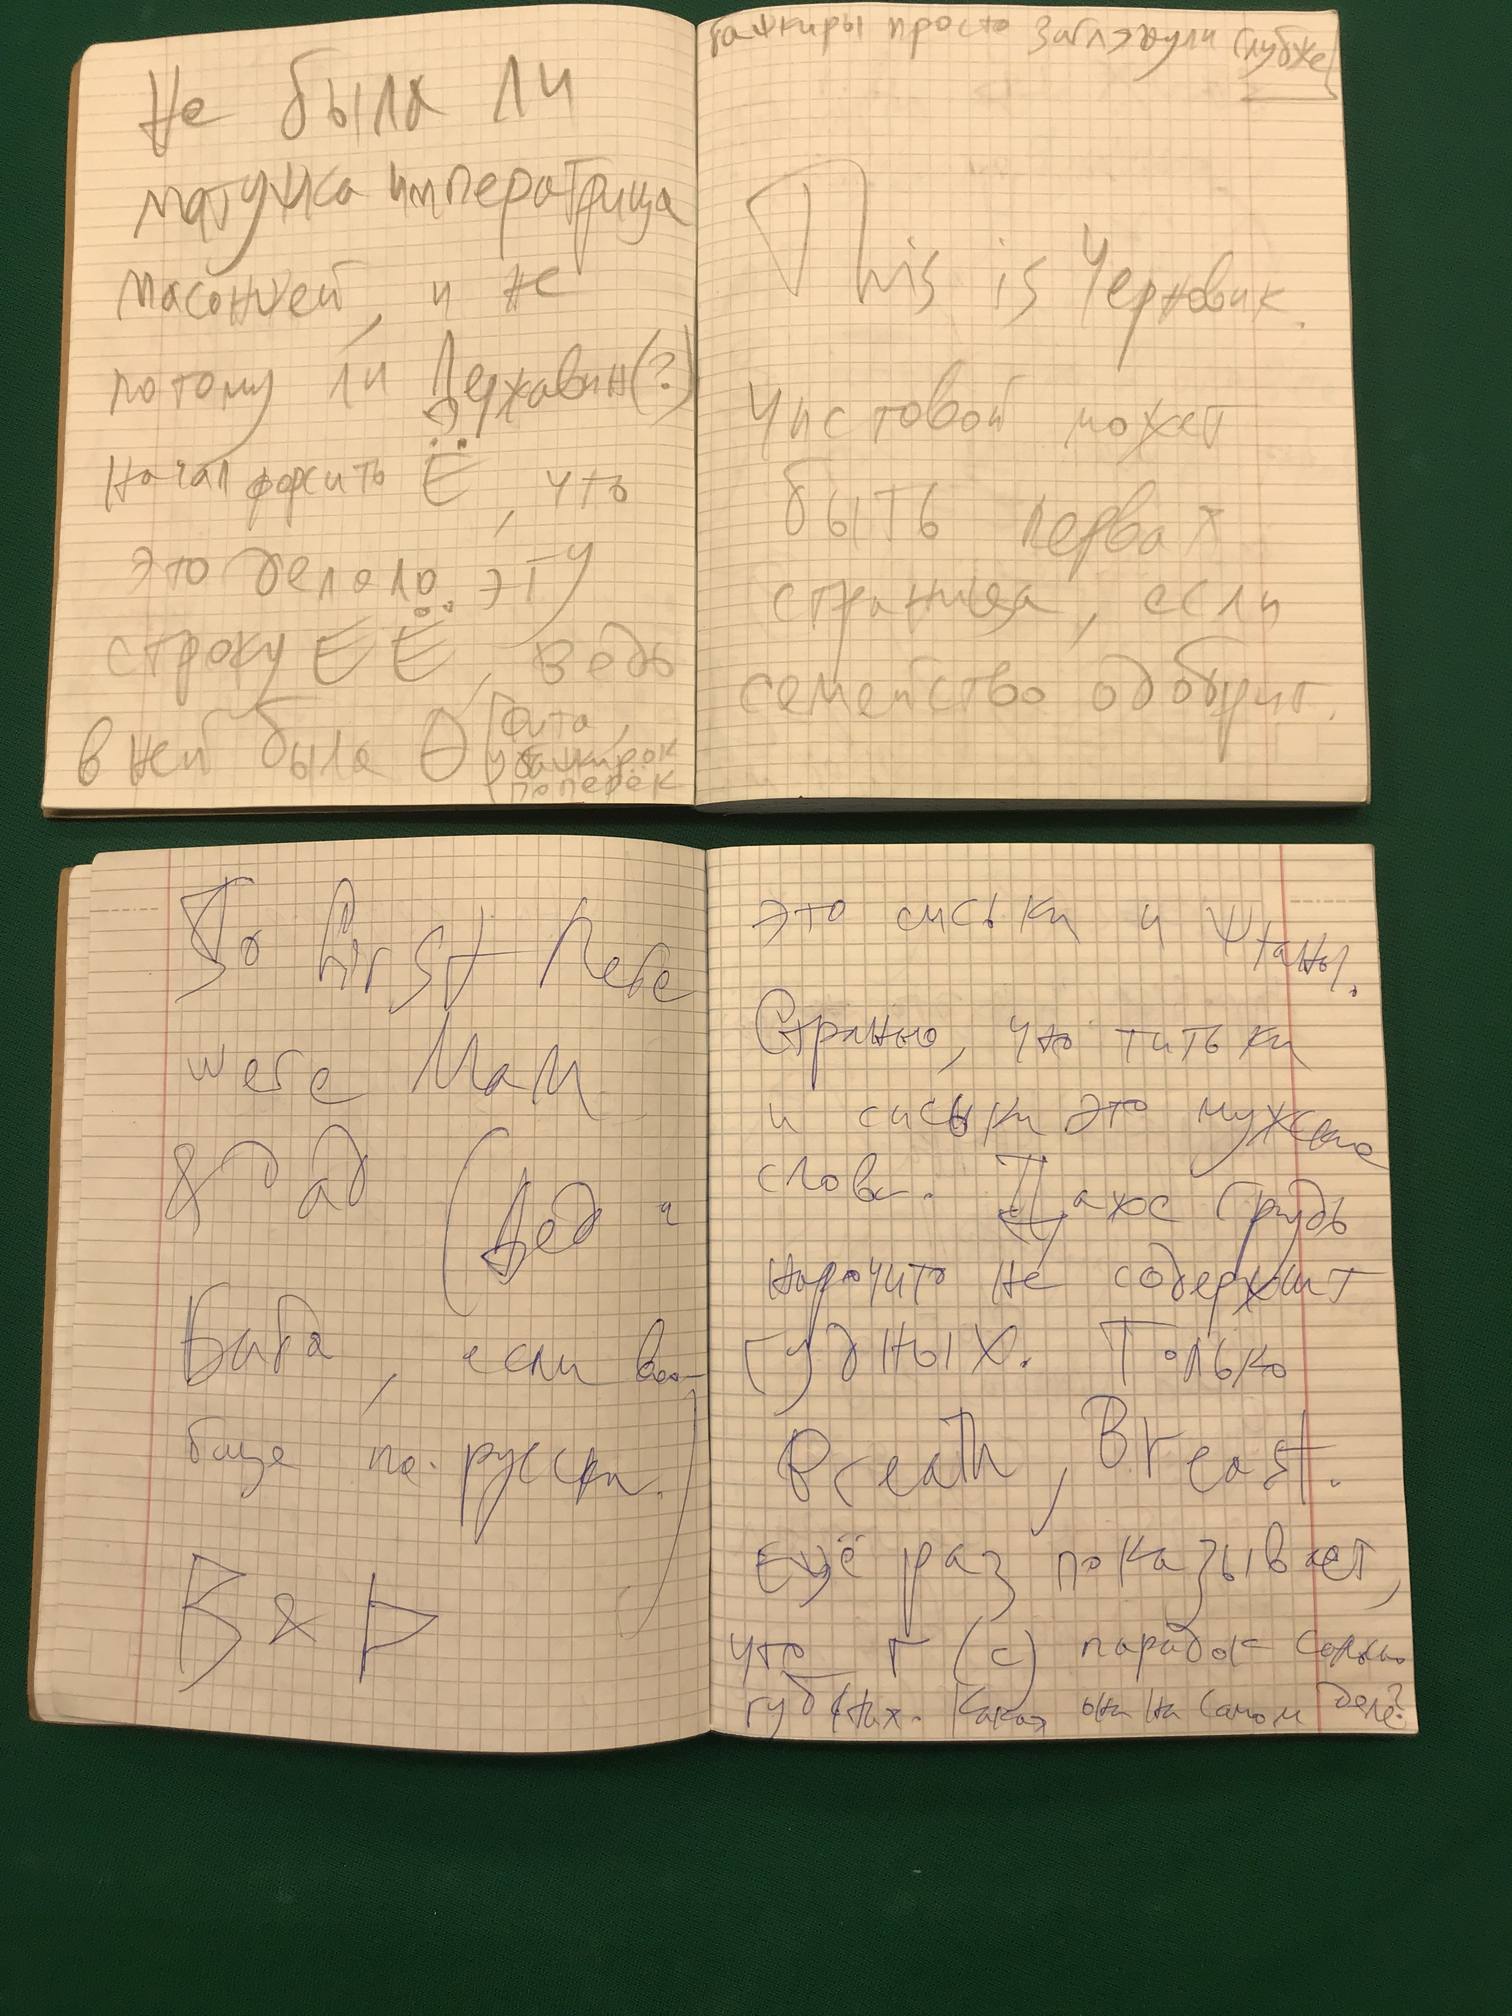 Не была ли
матушка императрица
масонкей, и не
потому ли Державин(?)
Начал форсить Ё, что
это делало эту
строку ЕЁ, ведь
в ней была Ѳ
(Фита,
у башкирок
поперёк
башкиры просто заглянули глубже)
This is Черновик.
Чистовой может
быть первая
страница, если
семейство одобрит.
So first here
were Mam
& Dad (Дед и
Баба, если воо-
бще по-русски.)
B & D
это сиськи и штаны.
Странно, что титьки
и сиськи это мужские
слова. Даже грудь
нарочито не содержит
губных. Только
Breath, Breast.
Ещё раз показывает,
что т (с) парадок
губных. Какая она на самом деле?